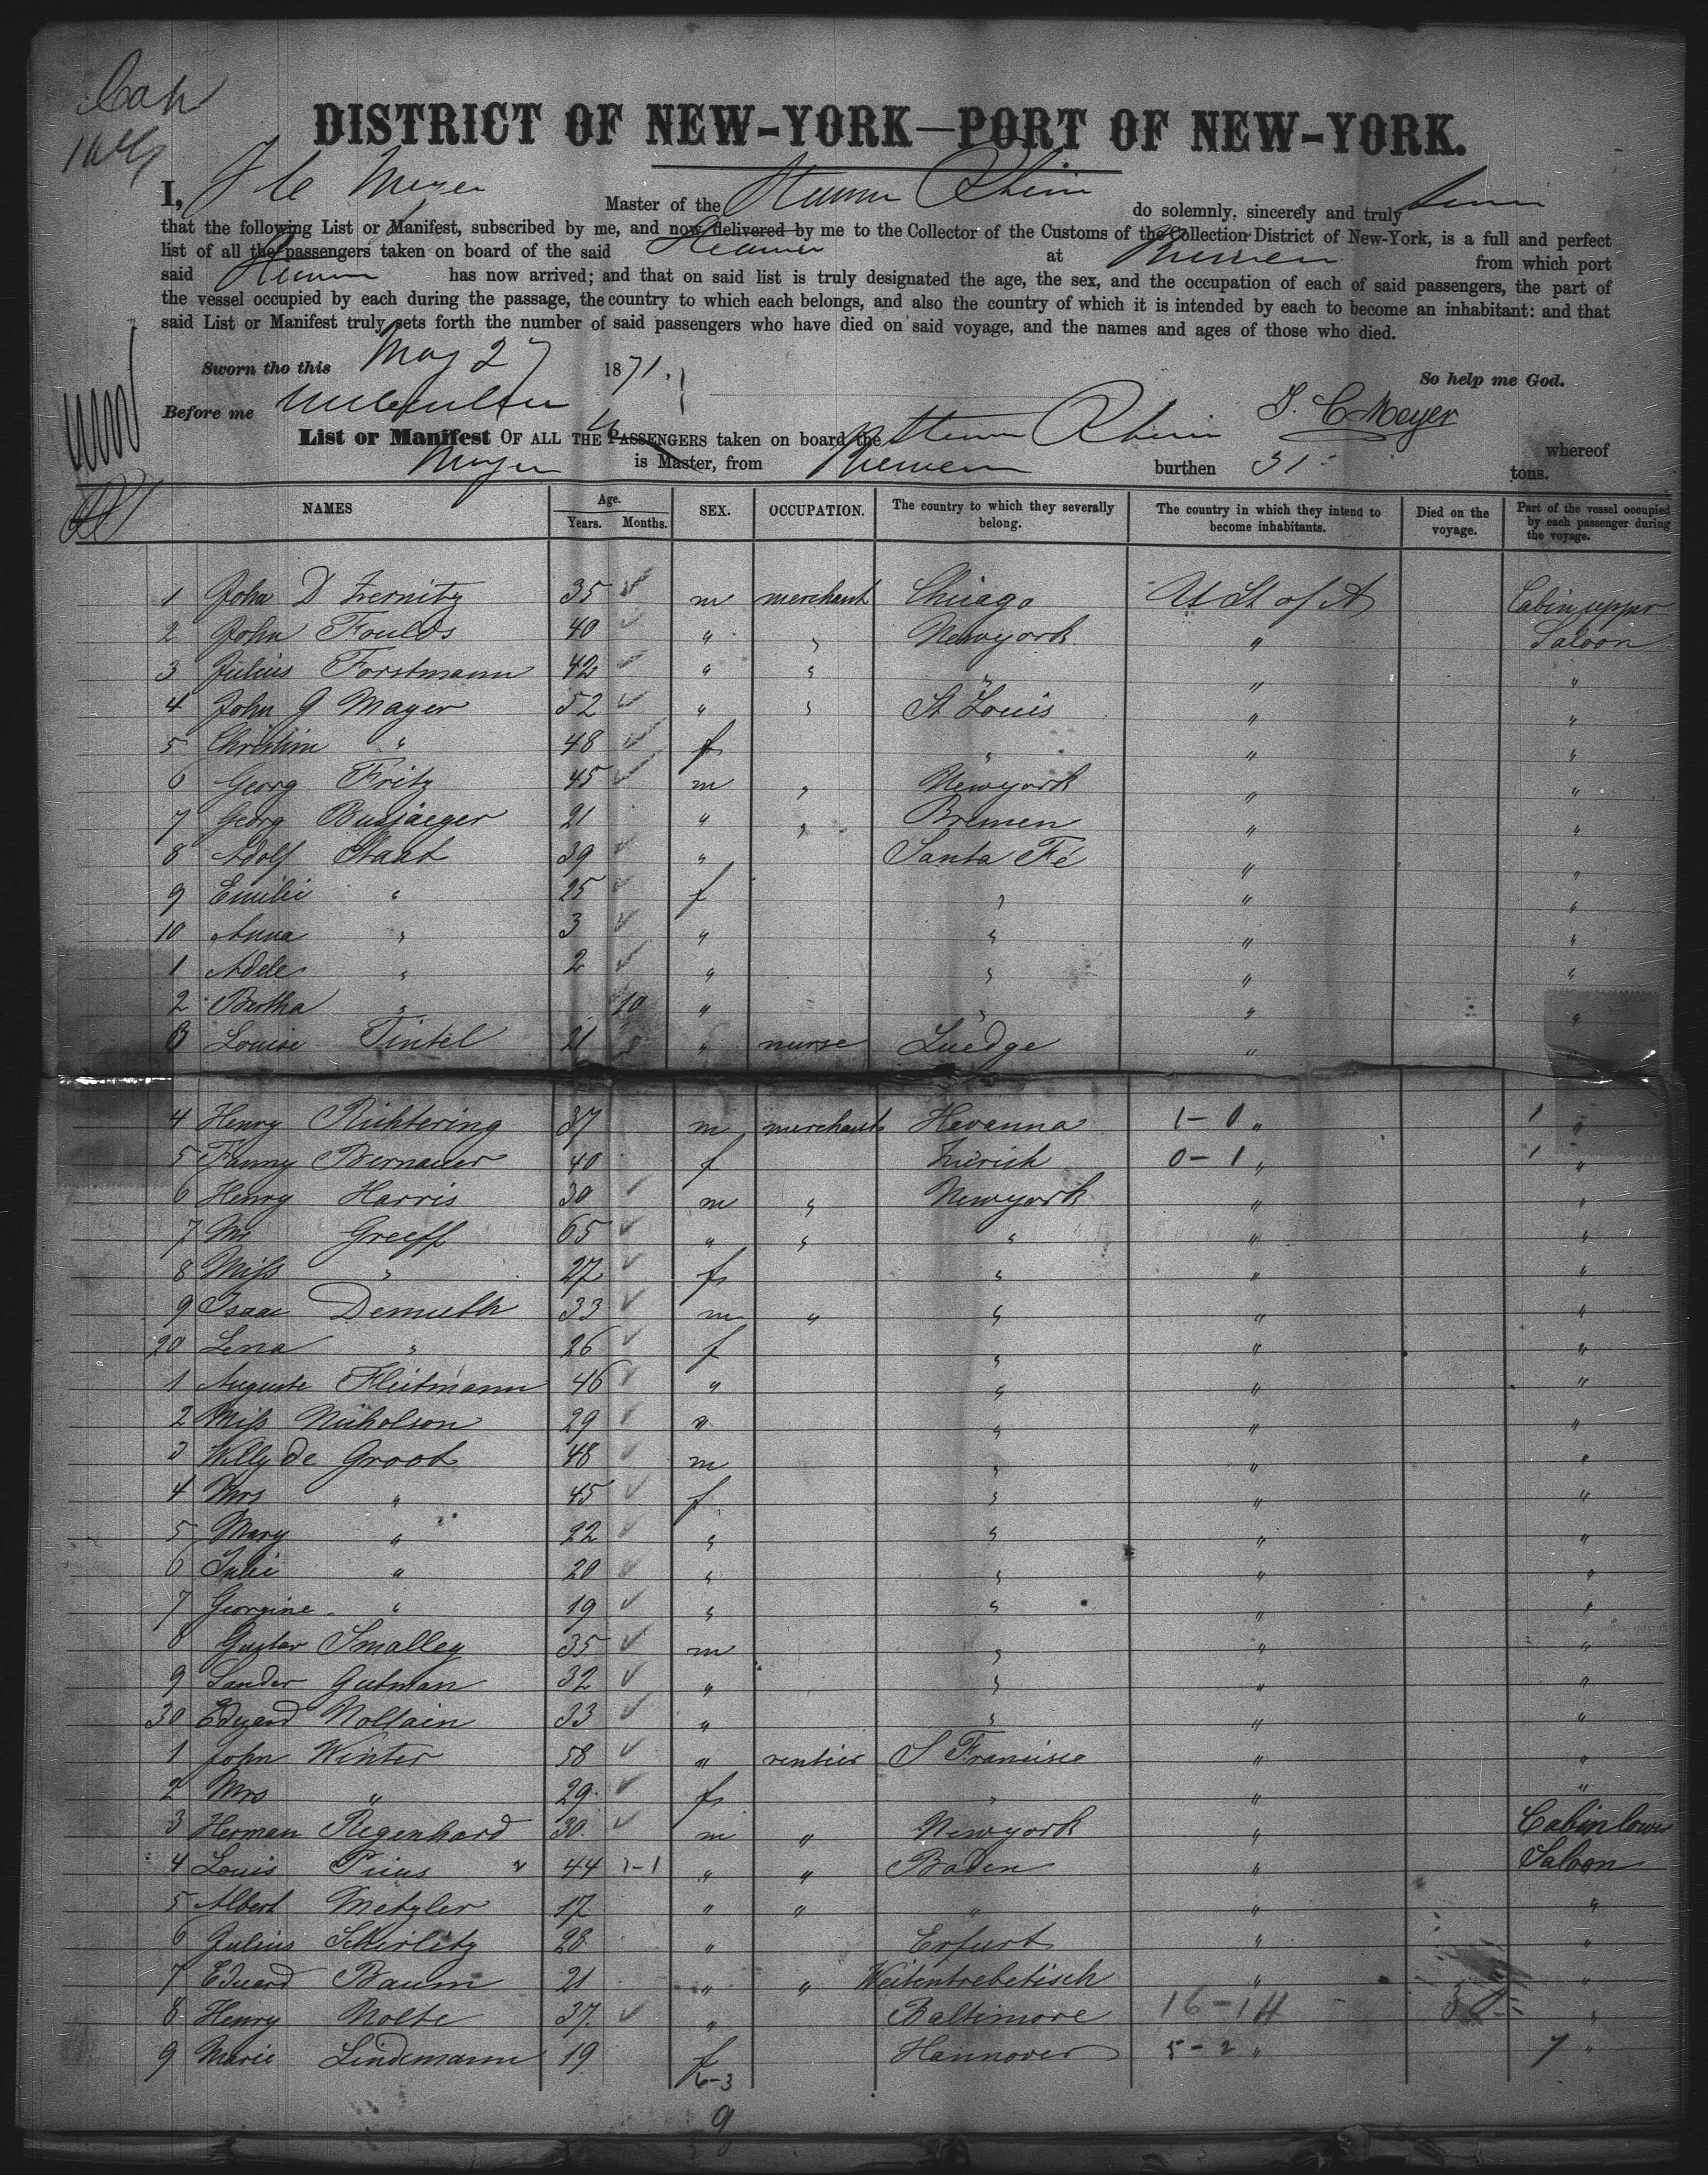 Cab
DISTRICT OF NEW-YORK—PORT OF NEW-YORK.
I, J C Meyer Master of the Steamer Rhein do solemnly, sincerely and truly swear
that the following List or Manifest, subscribed by me, and now delivered by me to the Collector of the Customs of the Collection District of New-York, is a full and perfect
list of all the passengers taken on board of the said Steamer at Bremen from which port
said Steamer has now arrived; and that on said list is truly designated the age, the sex, and the occupation of each of said passengers, the part of
the vessel occupied by each during the passage, the country to which each belongs, and also the country of which it is intended by each to become an inhabitant: and that
said List or Manifest truly sets forth the number of said passengers who have died on said voyage, and the names and ages of those who died.
Sworn tho this May 27 1871. So help me God.
Before me J. C. Meyer
List or Manifest OF ALL THE PASSENGERS taken on board the Steamer Rhein whereof
Meyer is Master, from Bremen burthen 31 tons.
NAMES Age. Years. Months. SEX. OCCUPATION. The country to which they severally belong. The country in which they intend to become inhabitants. Died on the voyage. Part of the vessel occupied by each passenger during the voyage.
1 John D Zernitz 35 m merchant Chicago U St of A Cabin upper
2 John Foulds 40 " " Newyork " Saloon
3 Julius Forstmann 42 " " " " "
4 John G Mayer 52 " " St Louis " "
5 Christine " 48 f " " "
6 Georg Fritz 45 m " Newyork " "
7 Georg Busjaeger 21 " " Bremen " "
8 Adolf Staab 39 " Santa Fé " "
9 Emilie " 25 f " " "
10 Anna " 3 " " " "
1 Adele " 2 " " " "
2 Bertha " 10 " " " "
3 Louise Tintel 21 " nurse Luedge " "
4 Henry Richtering 37 m merchant Havanna 1-0 " 1 "
5 Fanny Bernauer 40 f Zürich 0-1 " 1 "
6 Henry Harris 30 m " Newyork " "
7 Mr Greeff 65 " " " " "
8 Miss " 27 f " " "
9 Isaac Demuth 33 m " " " "
20 Lena " 26 f " " "
1 Auguste Fleitmann 46 " " " "
2 Miss Nicholson 29 " " " "
3 Willy de Groot 48 m " " "
4 Mrs " 45 f " " "
5 Mary " 22 " " " "
6 Julie " 20 " " " "
7 Georgine " 19 " " " "
8 Gustav Smalley 35 m " " "
9 Sander Gutman 32 " " " "
30 Eduard Noltain 33 " " " "
1 John Winter 58 " rentier S Francisco " "
2 Mrs " 29 f " " "
3 Herman Regenhard 30 m " Newyork " Cabin lower
4 Louis Pius 44 1-1 " " Baden " Saloon
5 Albert Metzler 17 " " " " "
6 Julius Schirlitz 28 " Erfurt " "
7 Eduard Baum 21 " " Weitentrebetisch " "
8 Henry Nolte 37 " Baltimore 16-14 "
9 Marie Lindemann 19 f Hannover 5-2 " 7 "
6-3
9